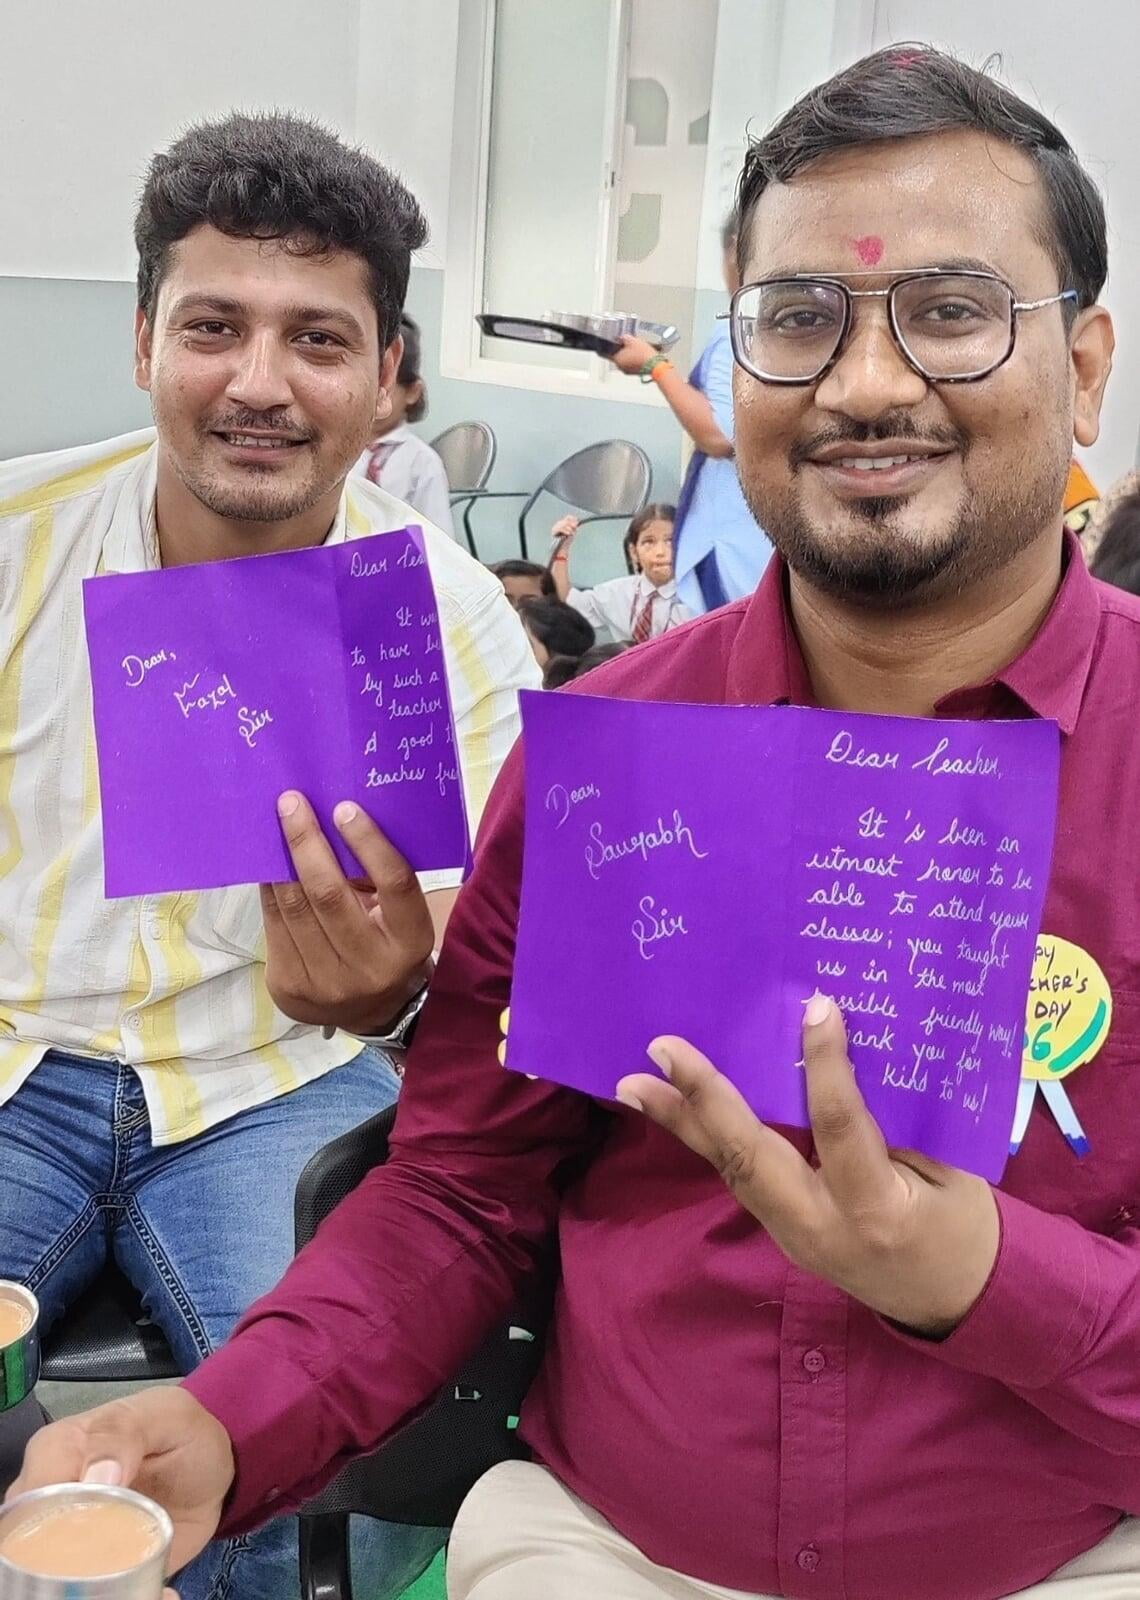 Dear,
Fazal
Sir
Dear
It
to have
by such a
teacher
A good
teaches
Dear,
Saurabh
Sir
Dear Teacher,
It's been an
utmost honor to be
able to attend your
classes; you taught
us in the most
possible friendly way!
Thank you for
kind to us!
DAY